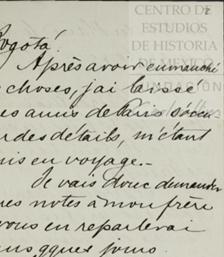 Bogotá.
CENTRO DE
ESTUDIOS
DE HISTORIA
DE MEXICO
Après avoir emmanché
choses, j'ai laissé
es amis de Paris s'occu
des détails, m'étant
mis en voyage.-
Je vais donc demander
es notes à mon frère
vous en reparlerai
ans qques jours.